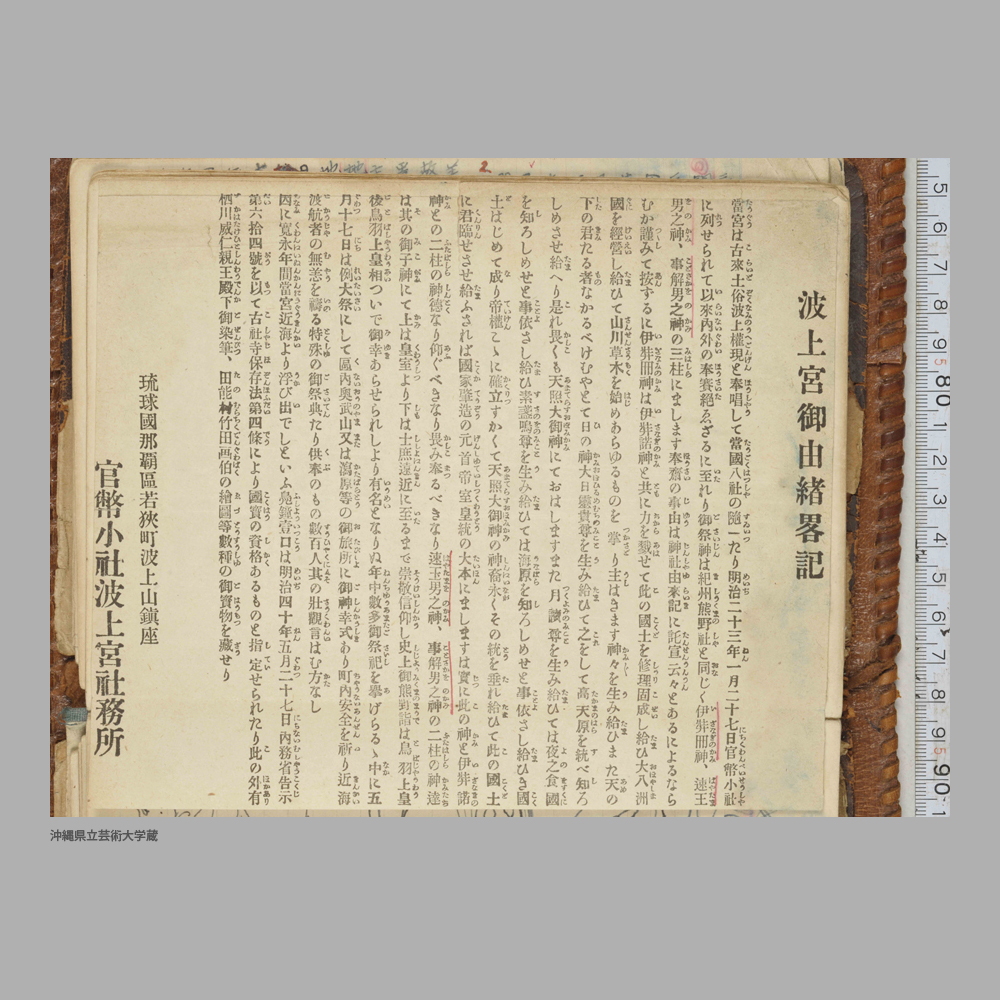 波上宮御由緒畧記
當宮は古來土俗波上權現と奉唱して當國八社の隨一たり明治二十三年一月二十七日官幣小社
に列せられて以來內外の奉賽絕ゑざるに至れり御祭神は紀州熊野社と同じく伊弉冊神、速玉
男之神、事解男之神の三柱にまします奉齋の事由は神社由來記に託宣云々とあるによるなら
むか謹みて按するに伊弉冊神は伊弉諾神と共に力を戮せて此の國土を修理固成し給ひ大八洲
國を經營し給ひて山川草木を始めあらゆるものを掌り主はきます神々を生み給ひまた天の
下の君たる者なかるべけむやとて日の神大日孁貴尊を生み給ひて之をして高天原を統べ知ろ
しめさせ給へり是れ畏くも天照大御神にておはしますまた月讀尊を生み給ひては夜之食國
を知ろしめせと事依さし給ひ素盞嗚尊を生み給ひては海原を知ろしめせと事依さし給ひき國
土はじめて成り帝權こゝに確立すかくて天照大御神の神裔永くその統を垂れ給ひて此の國土
に君臨せさせ給ふされば國家肇造の元首帝室皇統の大本にましますは實に此の神と伊弉諾
神との二柱の神德なり仰ぐべきなり畏み奉るべきなり速玉男之神、事解男之神の二柱の神達
は其の御子神にて上は皇室より下は士庶遠近に至るまで崇敬信仰し史上御熊野詣は鳥羽上皇
後鳥羽上皇相ついで御幸あらせられしより有名となりぬ年中數多御祭祀を擧げらるゝ中に五
月十七日は例大祭にして區內奧武山又は潟原等の御旅所に御神幸式あり町內安全を祈り近海
渡航者の無恙を禱る特殊の御祭典たり供奉のもの數百人其の壯觀言はむ方なし
因に寬永年間當宮近海より浮び出でしといふ鳧鐘壹口は明治四十年五月二十七日內務省告示
第六拾四號を以て古社寺保存法第四條により國寶の資格あるものと指定せられたり此の外有
栖川威仁親王殿下御染筆、田能村竹田画伯の繪圖等數種の御寶物を藏せり
琉球國那覇區若狹町波上山鎭座
官幣小社波上宮社務所
沖縄県立芸術大学蔵